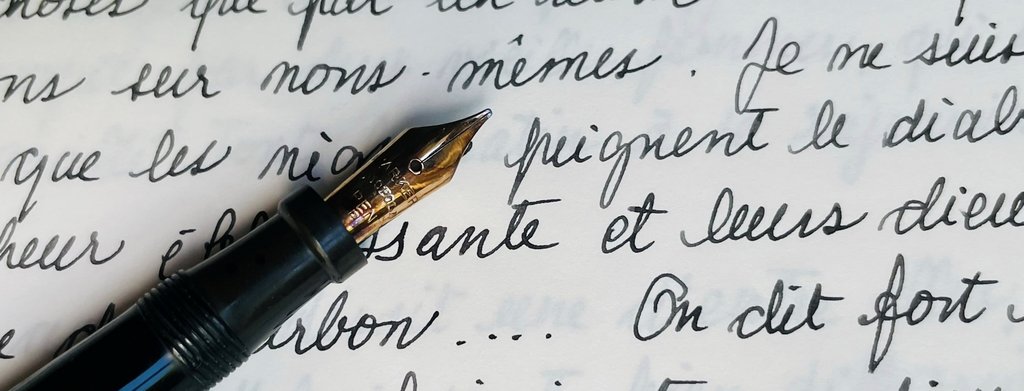 choses que par un
ns sur nous-mêmes. Je ne suis
que les peignent le diab
heur ssante et leurs dieu
rbon .... On dit fort